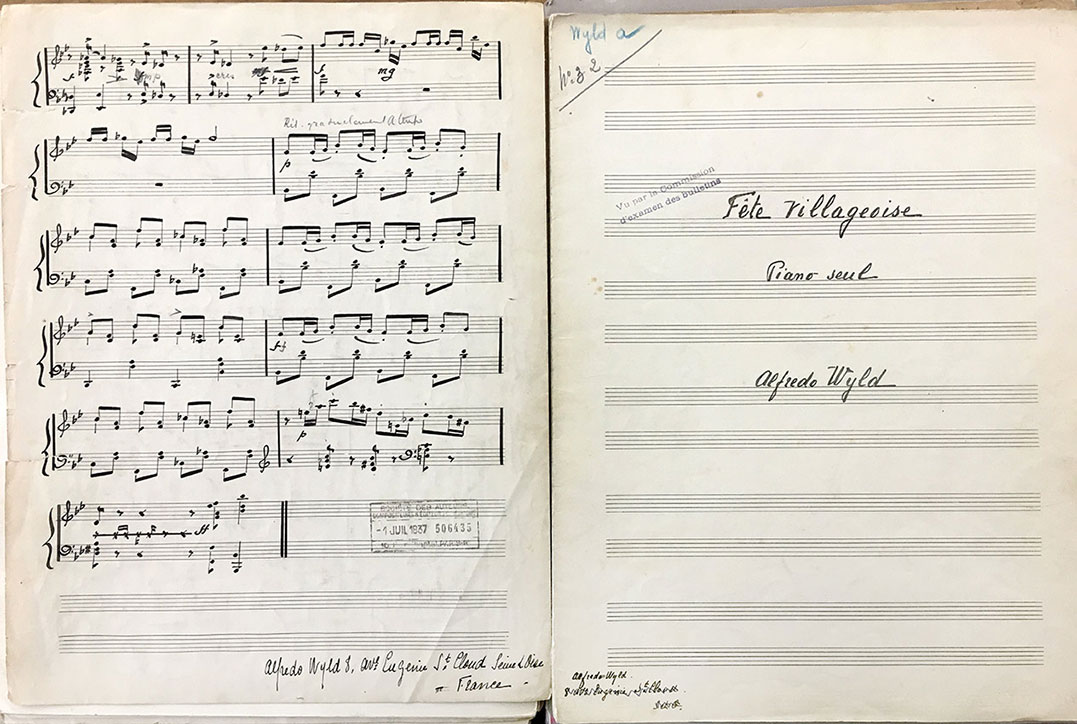 f mp cres mf f mg
Rit. graduelment A tempo
p
sf
p
ff
SOCIÉTÉ DES AUTEURS
-1 JUIL 1937 506435
Alfredo Wyld 8, avᵉ Eugénie Sᵗ Cloud Seine & Oise
= France -
Wyld a
Vu par la Commission
d'examen des bulletins
Fête Villageoise
Piano seul
Alfredo Wyld
Alfredo Wyld.
8 avᵉ Eugénie, Sᵗ Cloud